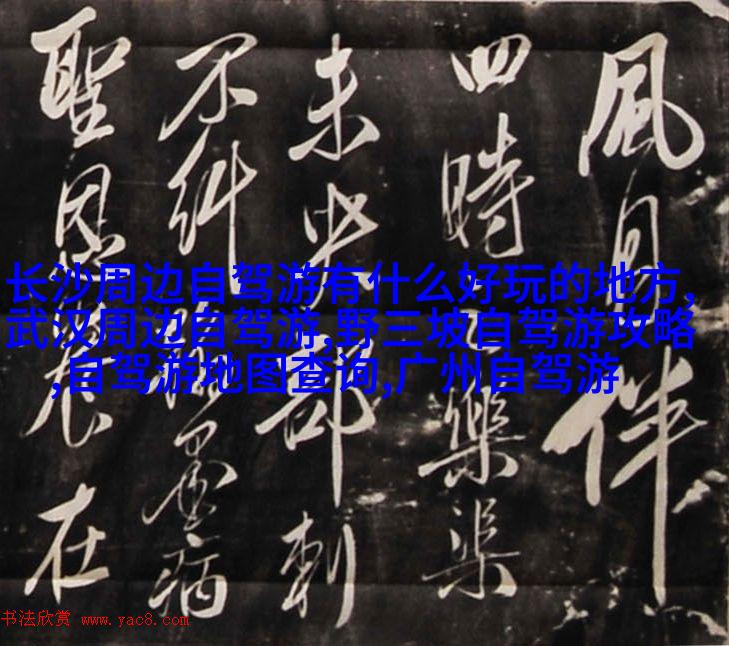 風月伴
四時樂柒
未央部刺
不糾墨病
聖恩在
长沙周边自驾游有什么好玩的地方,
武汉周边自驾游,野三坡自驾游攻略
,自驾游地图查询,广州自驾游
书法欣赏 www.yac8.com